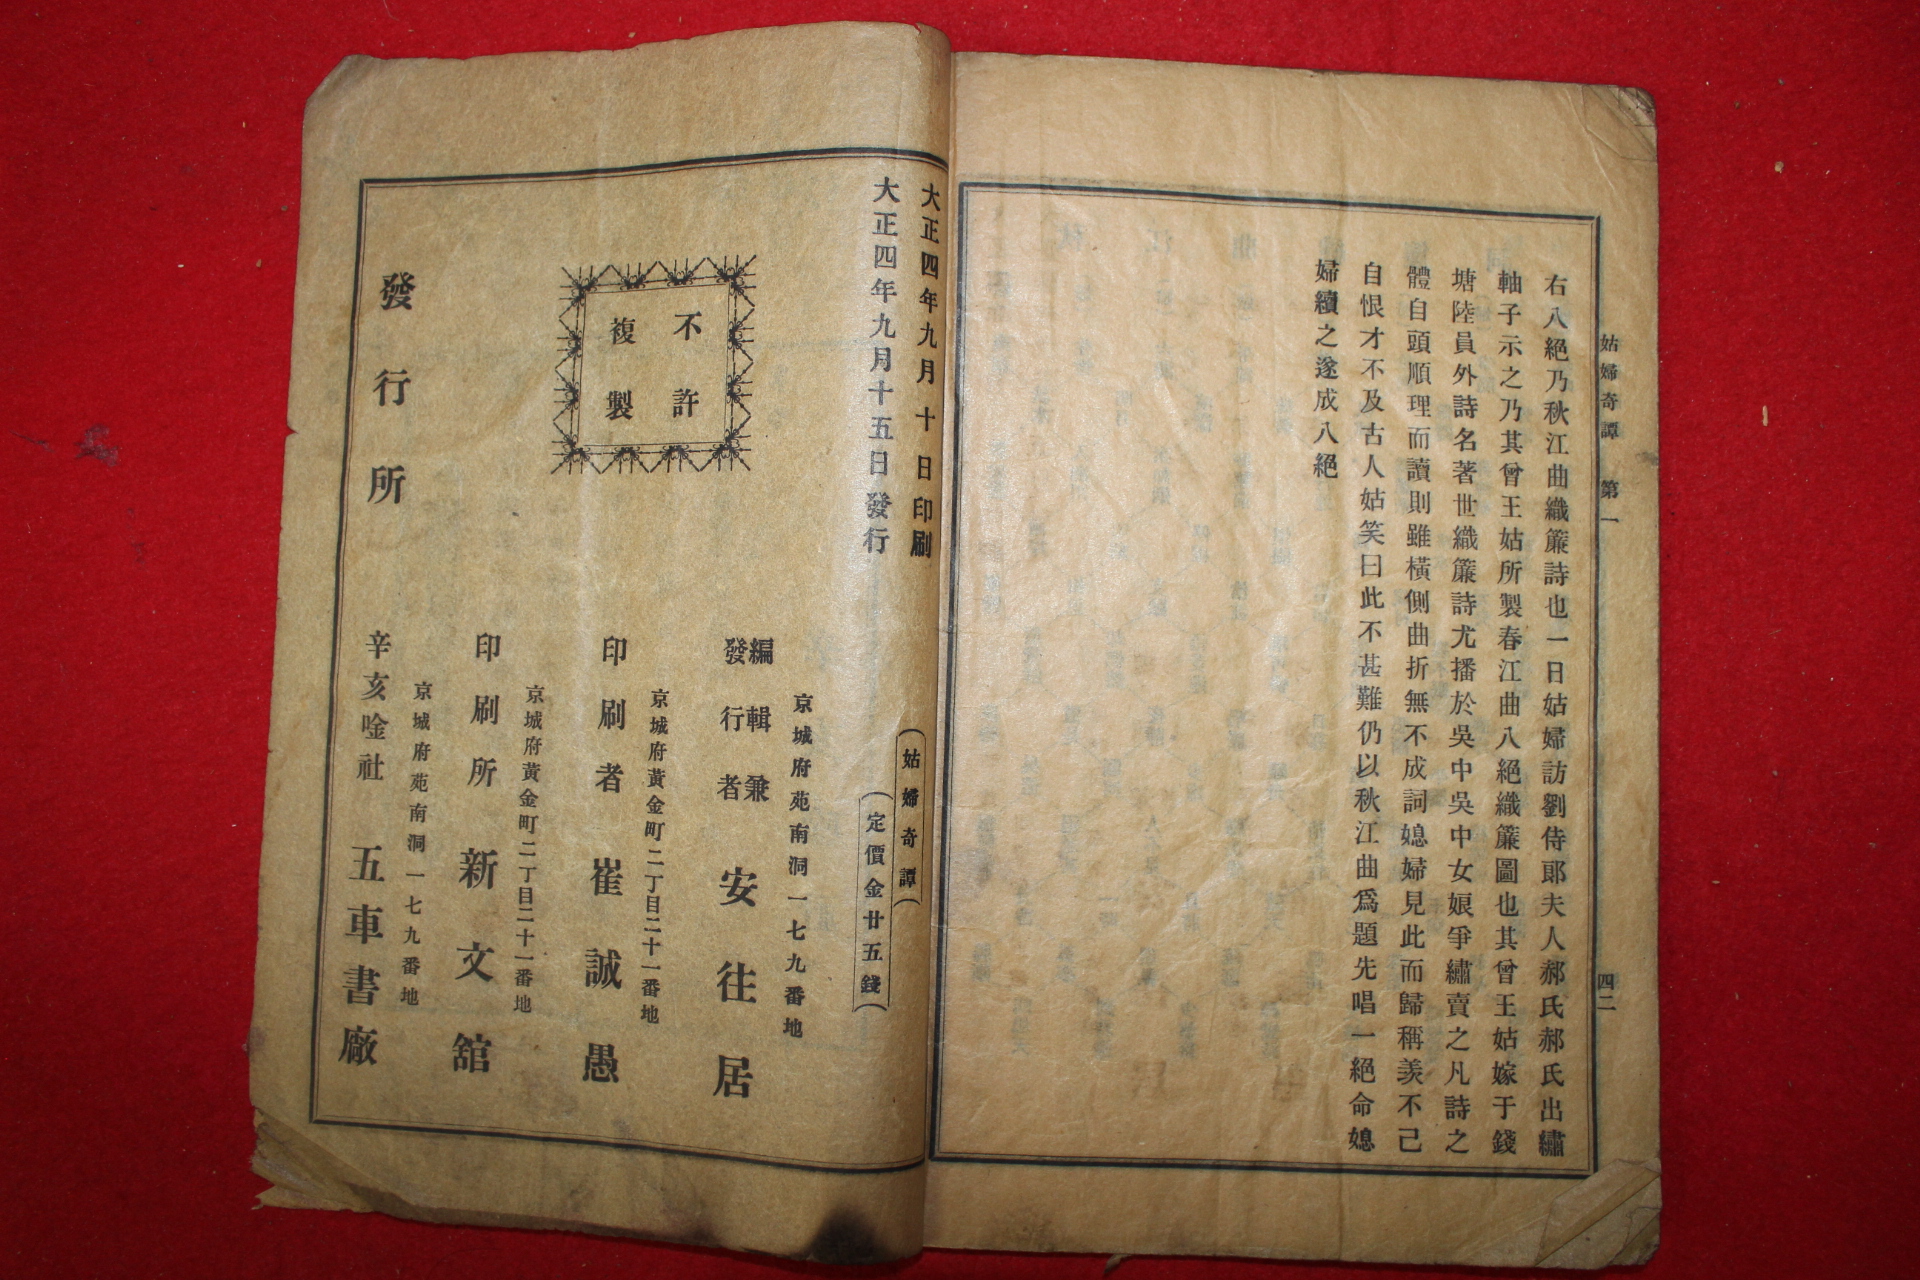 姑婦奇譚 第一 四二
右八絕乃秋江曲織簾詩也一日姑婦訪劉侍郞夫人郝氏郝氏出繡
軸子示之乃其曾王姑所製春江曲八絕織簾圖也其曾王姑嫁于錢
塘陸員外詩名著世織簾詩尤播於吳中吳中女娘爭繡賣之凡詩之
體自頭順理而讀則雖橫側曲折無不成詞媳婦見此而歸稱羨不已
自恨才不及古人姑笑曰此不甚難仍以秋江曲爲題先唱一絕命媳
婦續之遂成八絕
大正四年九月十日印刷
大正四年九月十五日發行
(姑婦奇譚)
(定價金廿五錢)
不許
複製
京城府苑南洞一七九番地
編輯兼
發行者 安往居
京城府黃金町二丁目二十一番地
印刷者 崔誠愚
京城府黃金町二丁目二十一番地
印刷所 新文館
京城府苑南洞一七九番地
發行所 辛亥唫社 五車書廠